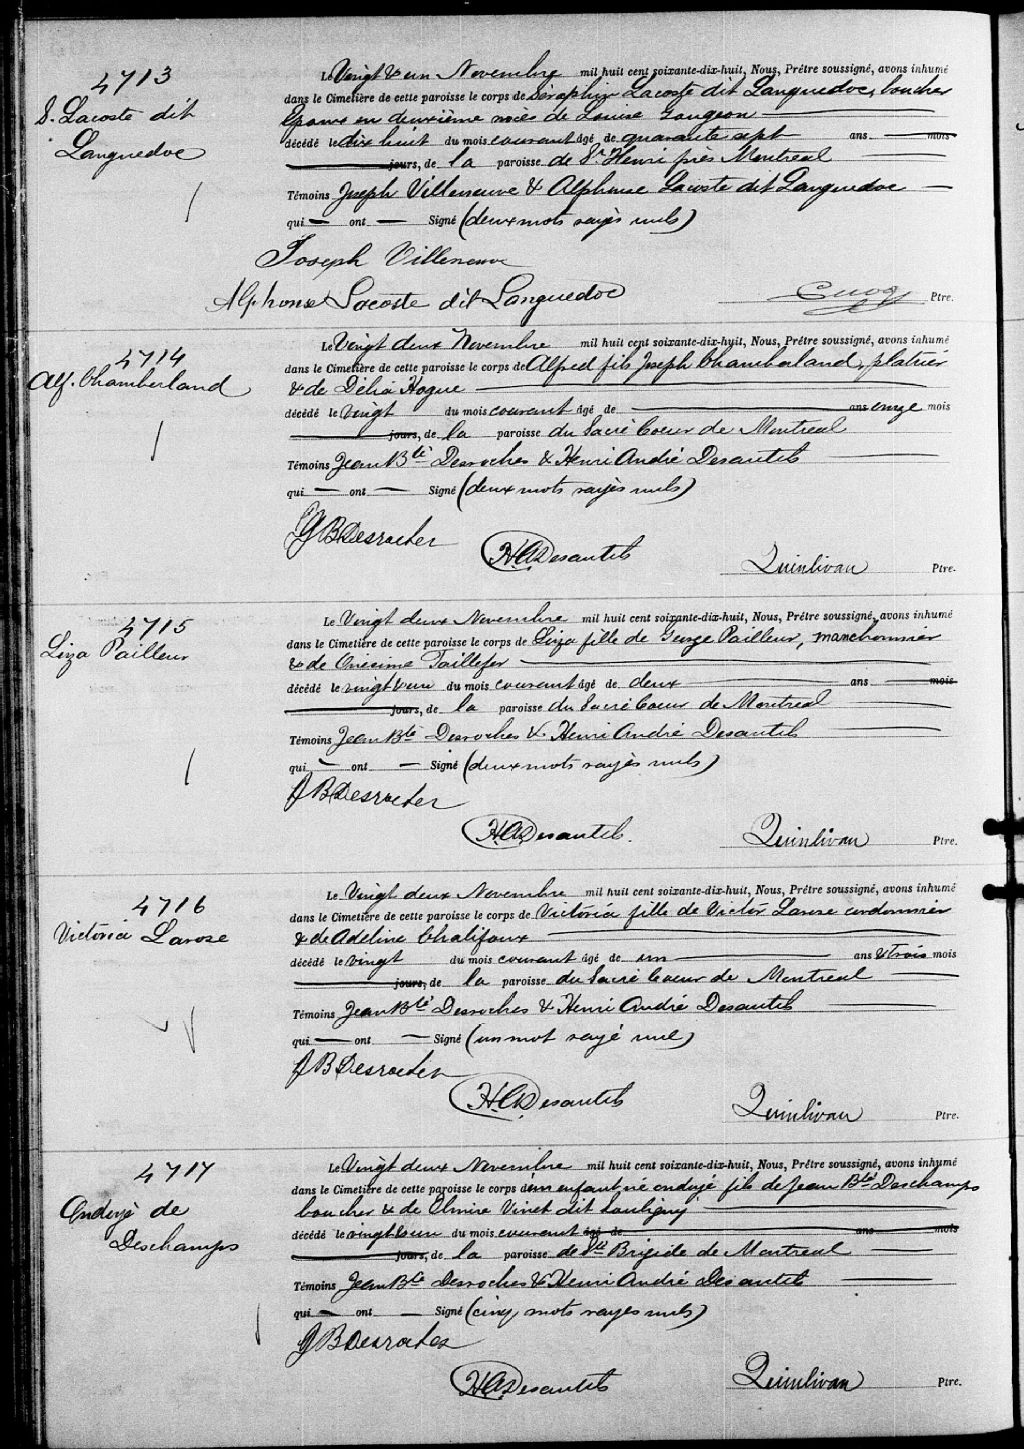 4713
S. Lacoste dit
Languedoc
Le Vingt & un Novembre mil huit cent soixante-dix-huit, Nous, Prêtre soussigné, avons inhumé
dans le Cimetière de cette paroisse le corps de Séraphin Lacoste dit Languedoc, boucher
Epoux en deuxième noces de Louise Gougeon
décédé le dix huit du mois courant âgé de quarante sept ans mois
jours, de la paroisse de St Henri près Montreal
Témoins Joseph Villeneuve & Alphonse Lacoste dit Languedoc
qui — ont — Signé (deux mots rayés nuls)
Joseph Villeneuve
Alphonse Lacoste dit Languedoc
Ptre.
4714
Alf. Chamberland
Le Vingt deux Novembre mil huit cent soixante-dix-huit, Nous, Prêtre soussigné, avons inhumé
dans le Cimetière de cette paroisse le corps de Alfred fils Joseph Chamberland, platrier
& de Délia Hogue
décédé le vingt du mois courant âgé de ans onze mois
jours, de la paroisse du Sacré Coeur de Montreal
Témoins Jean Bte Desroches & Henri André Desautels
qui — ont — Signé (deux mots rayés nuls)
J B Desrocher
H A Desautels
Quinlivan Ptre.
4715
Liza Pailleur
Le Vingt deux Novembre mil huit cent soixante-dix-huit, Nous, Prêtre soussigné, avons inhumé
dans le Cimetière de cette paroisse le corps de Liza fille de George Pailleur, manchonnier
& de Onesime Taillefer
décédé le vingt & un du mois courant âgé de deux ans mois
jours, de la paroisse du Sacré Coeur de Montreal
Témoins Jean Bte Desroches & Henri André Desautels
qui — ont — Signé (deux mots rayés nuls)
J B Desrocher
H A Desautels.
Quinlivan Ptre.
4716
Victoria Larose
Le Vingt deux Novembre mil huit cent soixante-dix-huit, Nous, Prêtre soussigné, avons inhumé
dans le Cimetière de cette paroisse le corps de Victoria fille de Victor Larose cordonnier
& de Adeline Chalifoux
décédé le vingt du mois courant âgé de un ans & trois mois
jours, de la paroisse du Sacré Coeur de Montreal
Témoins Jean Bte Desroches & Henri André Desautels
qui — ont — Signé (un mot rayé nul)
J B Desrocher
H A Desautels
Quinlivan Ptre.
4717
Ondoyé de
Deschamps
Le Vingt deux Novembre mil huit cent soixante-dix-huit, Nous, Prêtre soussigné, avons inhumé
dans le Cimetière de cette paroisse le corps d'un enfant né ondoyé fils de Jean Bte Deschamps
boucher & de Elmire Vinet dit Souligny
décédé le vingt & un du mois courant âgé de ans mois
jours, de la paroisse de Ste Brigide de Montreal
Témoins Jean Bte Desroches & Henri André Desautels
qui — ont — Signé (cinq mots rayés nuls)
J B Desrocher
H A Desautels
Quinlivan Ptre.